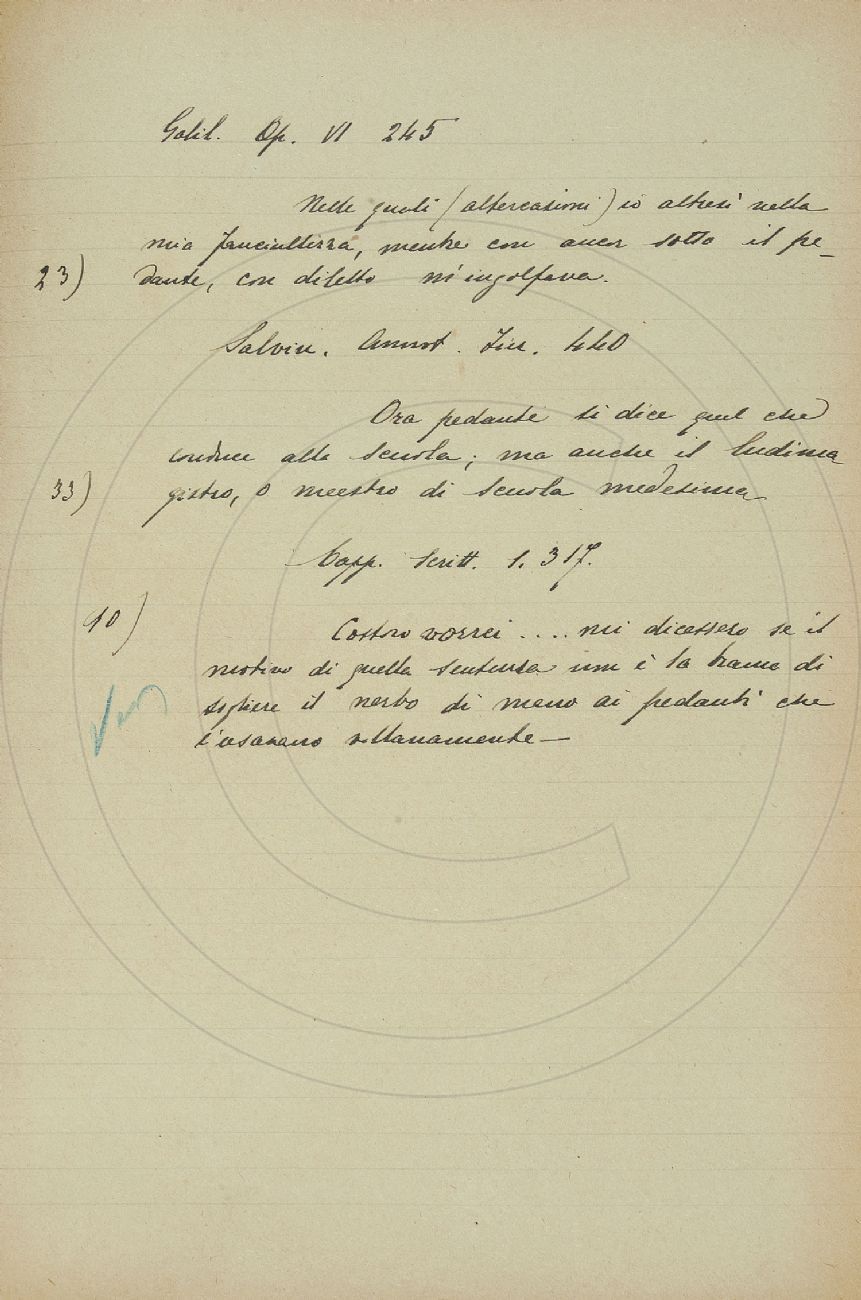 Galil. Op. VI 245
Nelle quali (altercazioni) io altresì nella
mia fanciullezza, mentre ero ancor sotto il pe-
23) dante, con diletto m'ingolfava.
Salvin. Annot. Fier. 440
Ora pedante si dice quel che
conduce alla scuola; ma anche il ludima
33) gistro, o maestro di scuola medesima
Capp. Scritt. 1. 317.
90) Costoro vorrei .... mi dicessero se il
motivo di quella sentenza non è la brama di
togliere il nerbo di mano ai pedanti che
l'usavano villanamente—